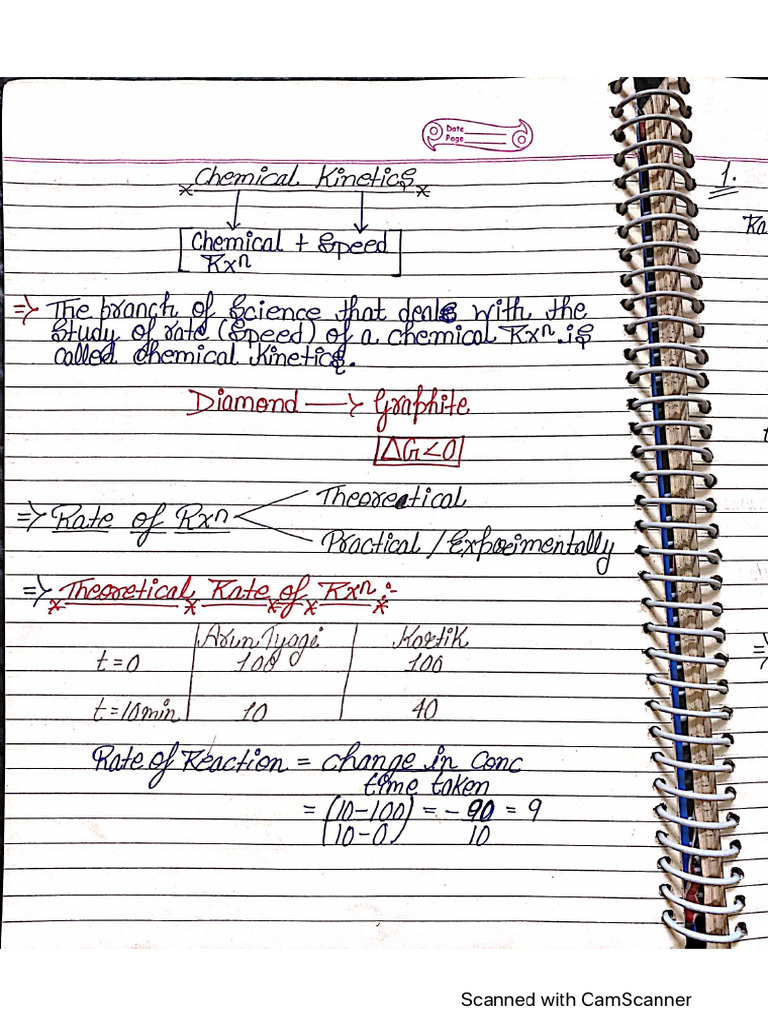 Date
Page
Chemical Kinetics
Chemical + Speed
Rxⁿ
1.
Ra
=> The branch of Science that deals with the
Study of rate (Speed) of a chemical Rxⁿ. is
called chemical Kinetics.
Diamond ⟶ Graphite
ΔG<0
=> Rate of Rxⁿ
Theoretical
Practical / Experimentally
=> Theoretical Rate of Rxⁿ :-
Arun Tyagi Kartik
t=0 100 100
t=10min 10 40
Rate of Reaction = change in Conc
time taken
= (10-100) = - 90 = 9
(10-0) 10
=>
Scanned with CamScanner